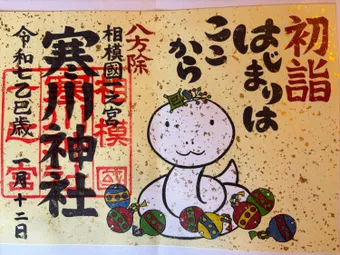 初詣
はじまりは
ここ
から
八方除
相模國一之宮
寒川神社
令和七乙巳歳 一月十二日